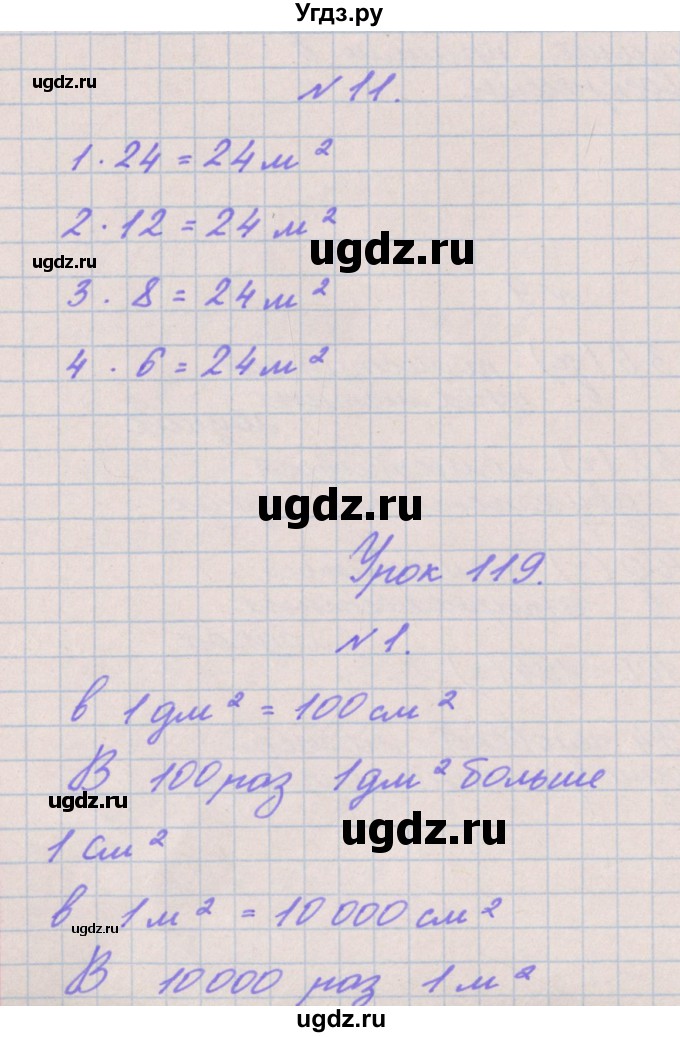 Угдз.ру
ugdz.ru
№11.
1·24=24м²
2·12=24м²
ugdz.ru
ugdz.ru
3·8=24м²
4·6=24м²
ugdz.ru
Урок 119.
№1.
в 1дм²=100см²
В 100раз 1дм² больше
ugdz.ru
ugdz.ru
1см²
в 1м²=10000см²
ugdz.ru
В 10000 раз 1м²
ugdz.ru